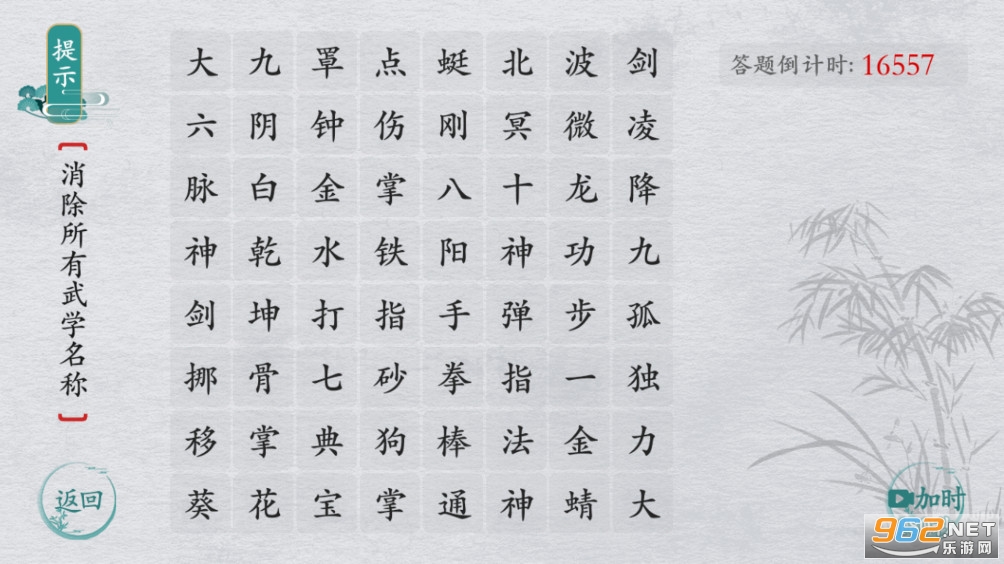 提示
【消除所有武学名称】
答题倒计时: 16557
大九罩点蜓北波剑
六阴钟伤刚冥微凌
脉白金掌八十龙降
神乾水铁阳神功九
剑坤打指手弹步孤
挪骨七砂拳指一独
移掌典狗棒法金力
葵花宝掌通神蜻大
返回
加时
962.NET
乐游网